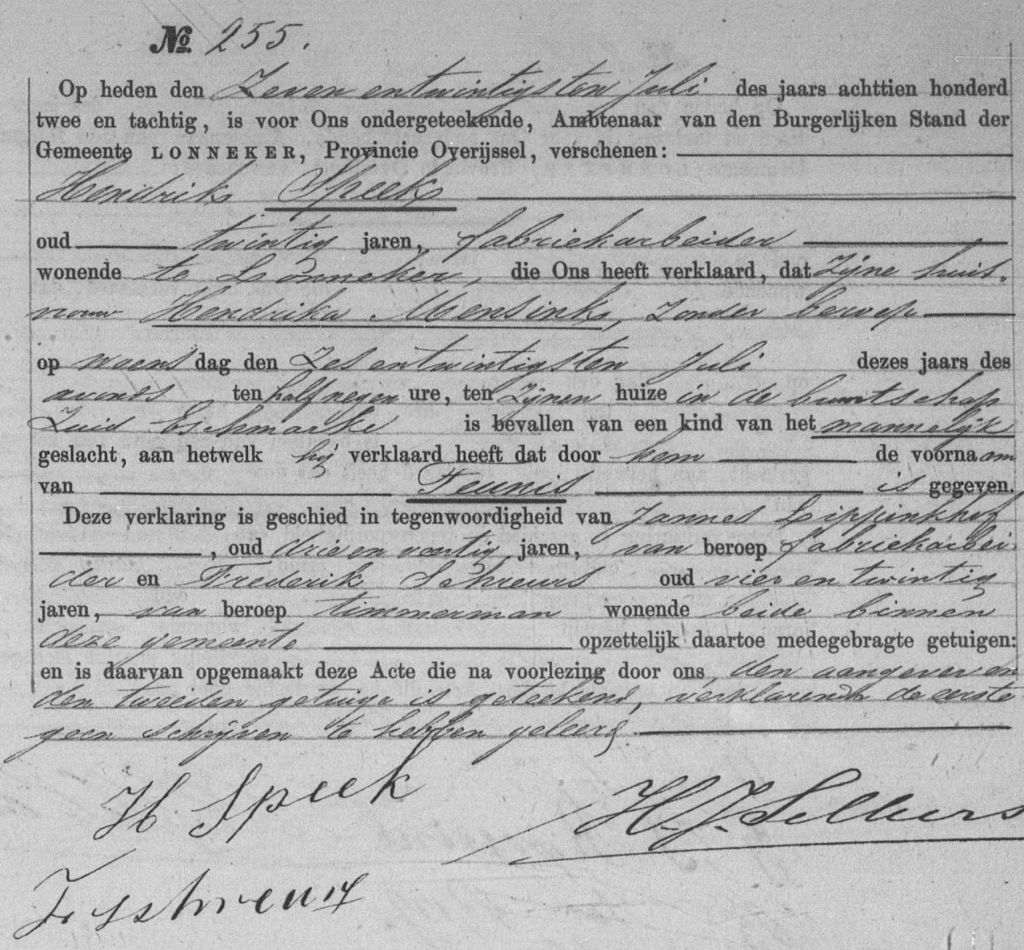 No. 255.
Op heden den Zeven entwintigsten Juli des jaars achttien honderd
twee en tachtig, is voor Ons ondergeteekende, Ambtenaar van den Burgerlijken Stand der
Gemeente LONNEKER, Provincie Overijssel, verschenen:
Hendrik Speek
oud twintig jaren, fabriekarbeider
wonende te Lonneker, die Ons heeft verklaard, dat Zijne huis-
vrouw Hendrika Mensink, Zonder beroep
op woensdag den Zes entwintigsten Juli dezes jaars des
avonds ten half negen ure, ten Zijnen huize in de buurtschap
Zuid Eschmarke is bevallen van een kind van het mannelijk
geslacht, aan hetwelk hij verklaard heeft dat door hem de voornaam
van Teunis is gegeven.
Deze verklaring is geschied in tegenwoordigheid van Jannes Lippinkhof
, oud drie en veertig jaren, van beroep fabriekarbei-
der en Frederik Schreurs oud vier en twintig
jaren, van beroep timmerman wonende beide binnen
deze gemeente opzettelijk daartoe medegebragte getuigen:
en is daarvan opgemaakt deze Acte die na voorlezing door ons, den aangever en
den tweeden getuige is geteekend, verklarende de eerste
geen schrijven te hebben geleerd.
H. Speek